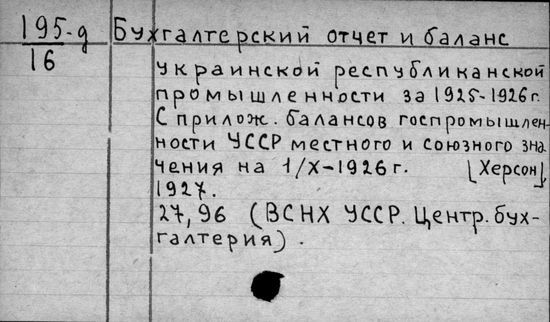 195-д
16
Бухгалтерский отчет и баланс
украинской республиканской
промышленности за 1925-1926г.
С прилож. балансов госпромышлен-
ности УССР местного и союзного зна
чения на 1/X-1926г. [Херсон],
1927.
27,96 (ВСНХ УССР. Центр. бух-
галтерия).